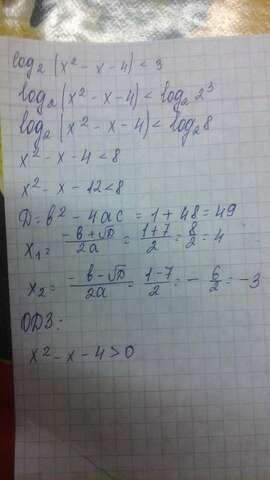 log₂(x² - x - 4) < 3
log₂(x² - x - 4) < log₂ 2³
log₂(x² - x - 4) < log₂ 8
x² - x - 4 < 8
x² - x - 12 < 8
D = b² - 4ac = 1 + 48 = 49
x₁ = (-b + √D)/2a = (1 + 7)/2 = 8/2 = 4
x₂ = (-b - √D)/2a = (1 - 7)/2 = - 6/2 = -3
ОДЗ:
x² - x - 4 > 0